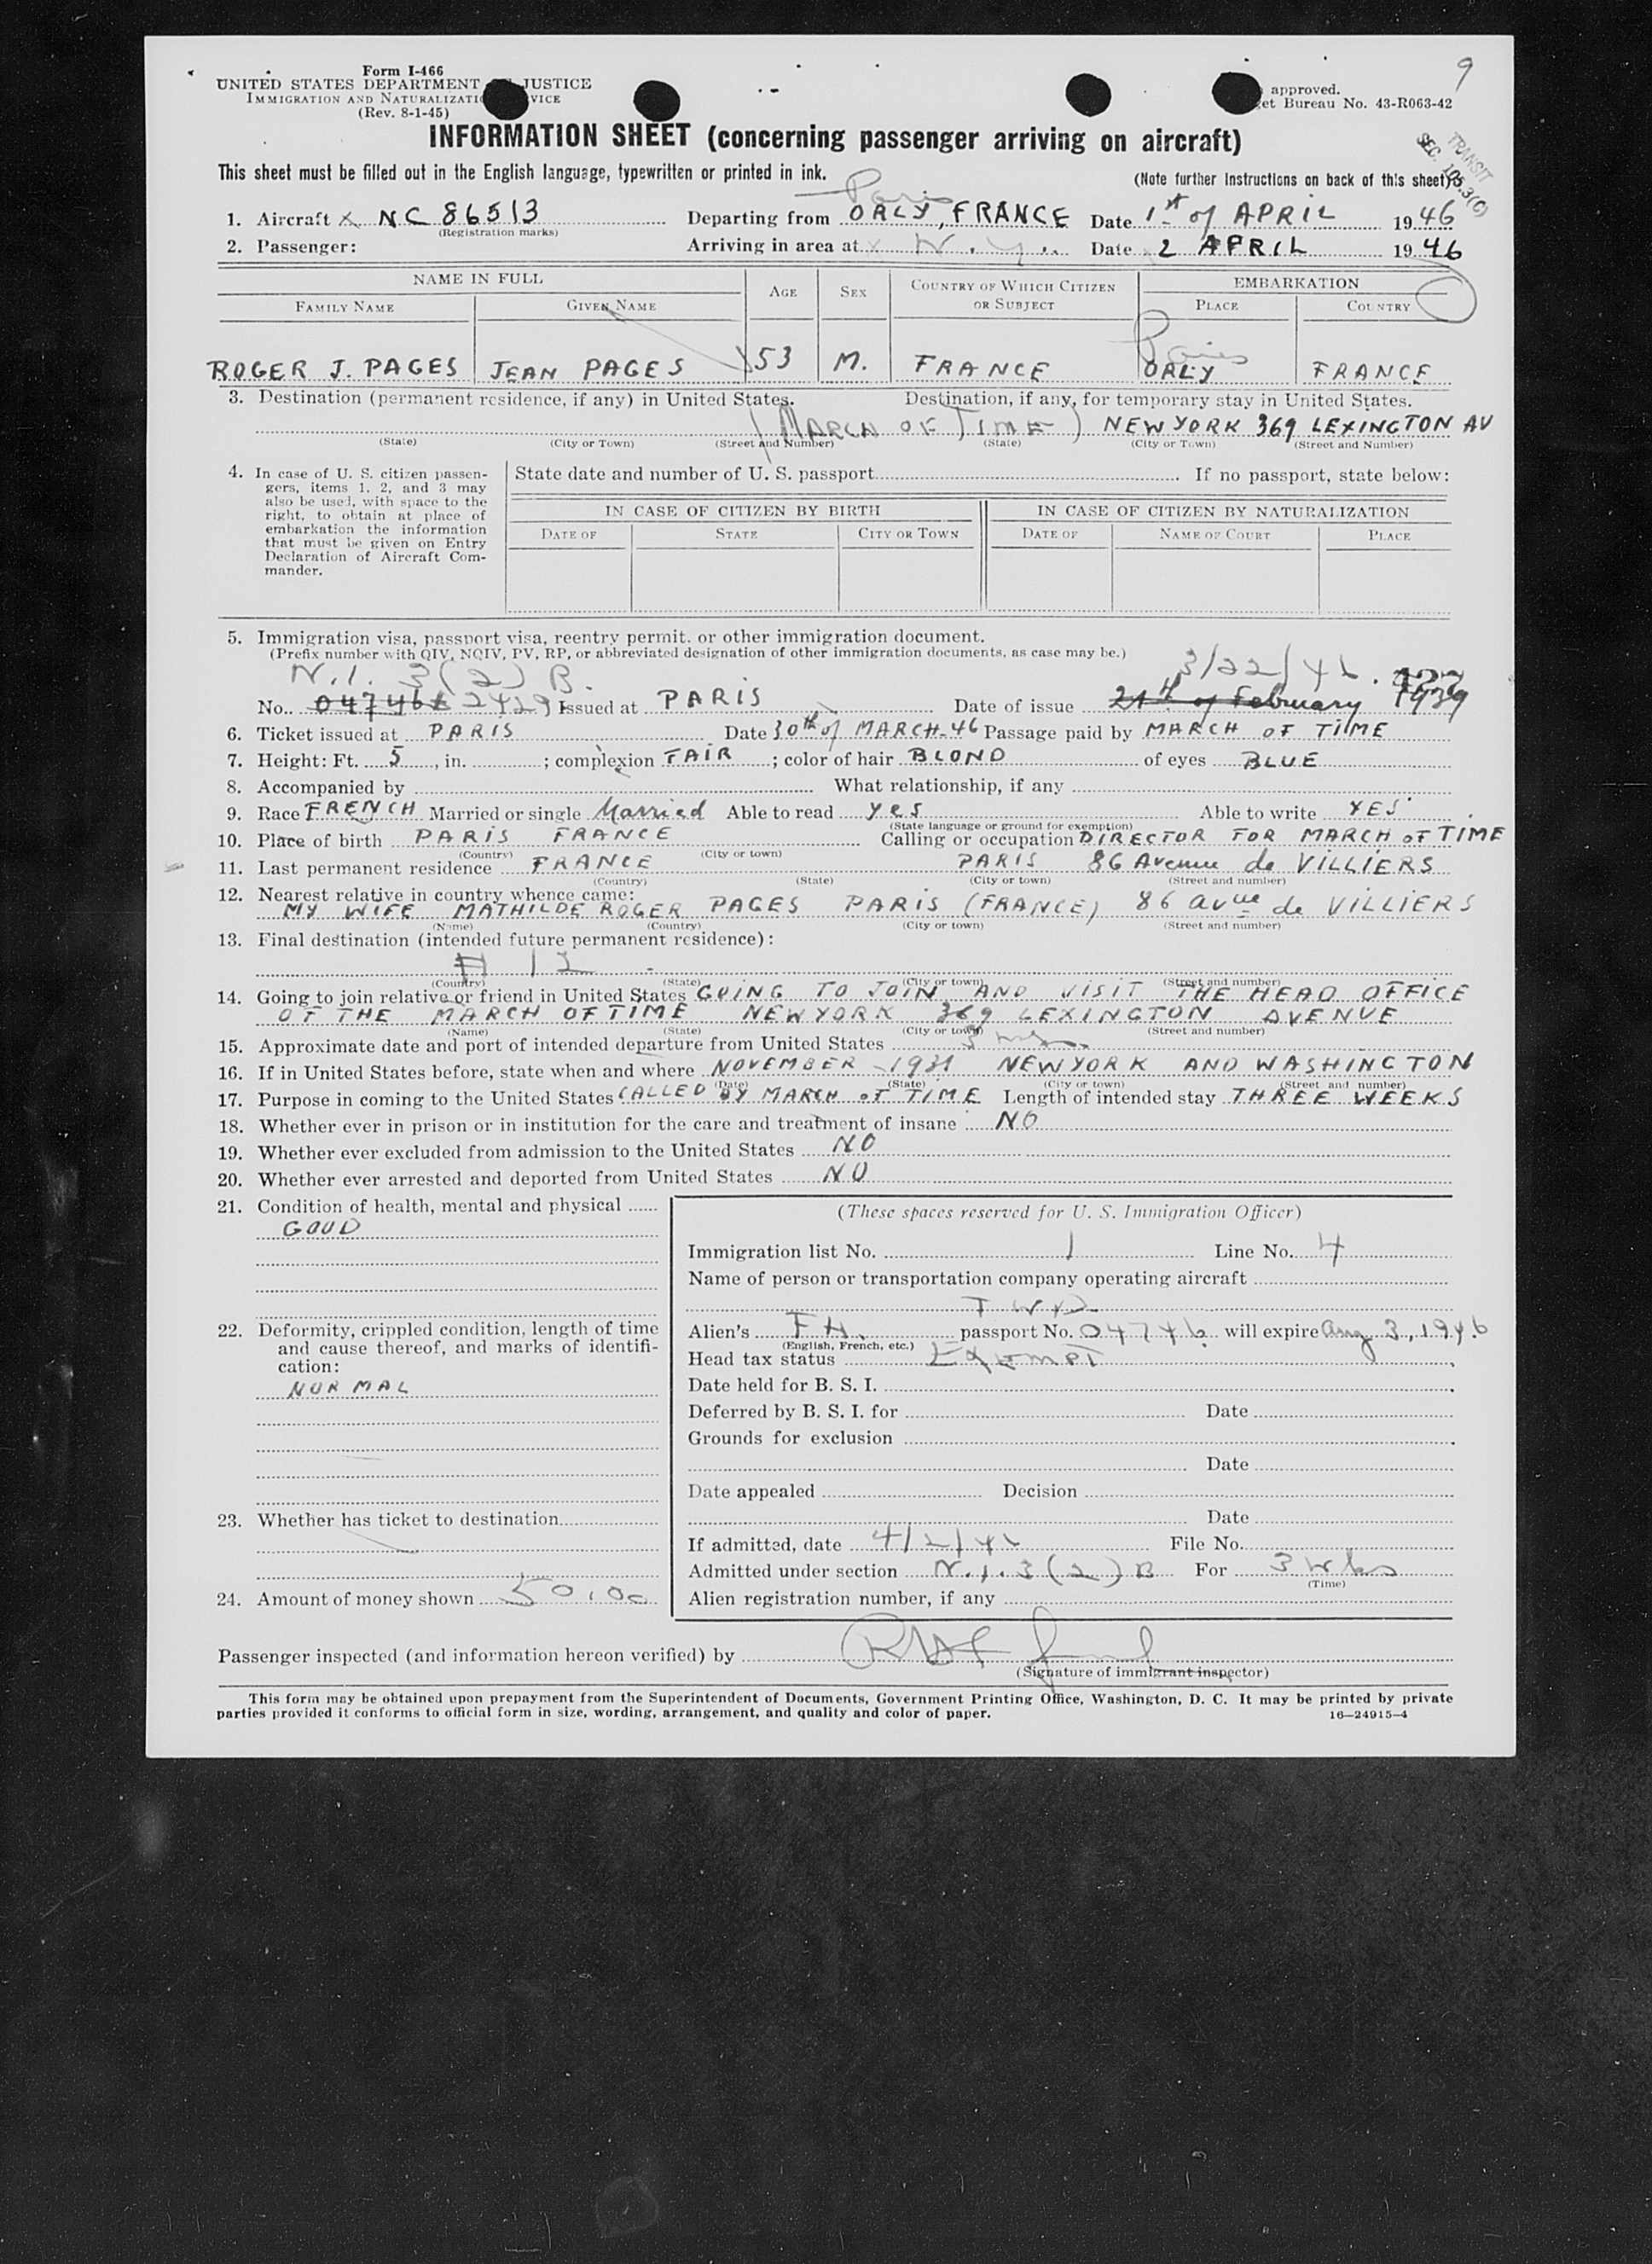 9
Form I-466
UNITED STATES DEPARTMENT JUSTICE
IMMIGRATION AND NATURALIZATI VICE
(Rev. 8-1-45)
approved.
et Bureau No. 43-R063-42
INFORMATION SHEET (concerning passenger arriving on aircraft)
TRANSIT
SEC. 105.3(c)
This sheet must be filled out in the English language, typewritten or printed in ink.
(Note further instructions on back of this sheet)
Paris
1. Aircraft x NC 86513 Departing from ORLY, FRANCE Date 1st of APRIL 1946
(Registration marks)
2. Passenger: Arriving in area at x N.Y. Date 2 APRIL 1946
NAME IN FULL AGE SEX COUNTRY OF WHICH CITIZEN OR SUBJECT EMBARKATION
FAMILY NAME GIVEN NAME PLACE COUNTRY
Paris
ROGER J. PAGES JEAN PAGES 53 M. FRANCE ORLY FRANCE
3. Destination (permanent residence, if any) in United States. Destination, if any, for temporary stay in United States.
(MARCH OF TIME) NEW YORK 369 LEXINGTON AV
(State) (City or Town) (Street and Number) (State) (City or Town) (Street and Number)
4. In case of U. S. citizen passengers, items 1, 2, and 3 may also be used, with space to the right, to obtain at place of embarkation the information that must be given on Entry Declaration of Aircraft Commander.
State date and number of U. S. passport If no passport, state below:
IN CASE OF CITIZEN BY BIRTH IN CASE OF CITIZEN BY NATURALIZATION
DATE OF STATE CITY OR TOWN DATE OF NAME OF COURT PLACE
5. Immigration visa, passport visa, reentry permit, or other immigration document.
(Prefix number with QIV, NQIV, PV, RP, or abbreviated designation of other immigration documents, as case may be.)
N.I. 3(2) B. 3/22/46.
No. 04746 2429 Issued at PARIS Date of issue 21th of February 1939
6. Ticket issued at PARIS Date 30th of MARCH-46 Passage paid by MARCH OF TIME
7. Height: Ft. 5, in. ; complexion FAIR ; color of hair BLOND of eyes BLUE
8. Accompanied by What relationship, if any
9. Race FRENCH Married or single Married Able to read yes Able to write YES
(State language or ground for exemption)
10. Place of birth PARIS FRANCE Calling or occupation DIRECTOR FOR MARCH OF TIME
(Country) (City or town)
11. Last permanent residence FRANCE PARIS 86 Avenue de VILLIERS
(Country) (State) (City or town) (Street and number)
12. Nearest relative in country whence came:
MY WIFE MATHILDE ROGER PAGES PARIS (FRANCE) 86 avue de VILLIERS
(Name) (Country) (City or town) (Street and number)
13. Final destination (intended future permanent residence):
(Country) (State) (City or town) (Street and number)
14. Going to join relative or friend in United States GOING TO JOIN AND VISIT THE HEAD OFFICE
OF THE MARCH OF TIME NEW YORK 369 LEXINGTON AVENUE
(Name) (State) (City or town) (Street and number)
15. Approximate date and port of intended departure from United States
16. If in United States before, state when and where NOVEMBER 1931 NEWYORK AND WASHINGTON
(Date) (State) (City or town) (Street and number)
17. Purpose in coming to the United States CALLED BY MARCH OF TIME Length of intended stay THREE WEEKS
18. Whether ever in prison or in institution for the care and treatment of insane NO
19. Whether ever excluded from admission to the United States NO
20. Whether ever arrested and deported from United States NO
21. Condition of health, mental and physical
GOOD
22. Deformity, crippled condition, length of time and cause thereof, and marks of identification:
NORMAL
23. Whether has ticket to destination
24. Amount of money shown 50.00
(These spaces reserved for U. S. Immigration Officer)
Immigration list No. 1 Line No. 4
Name of person or transportation company operating aircraft
TWA
Alien's FH. passport No. 04746 will expire Aug 3, 1946
(English, French, etc.)
Head tax status Exempt
Date held for B. S. I.
Deferred by B. S. I. for Date
Grounds for exclusion
Date
Date appealed Decision
Date
If admitted, date 4/2/46 File No.
Admitted under section N.I. 3(2) B For 3 wks
(Time)
Alien registration number, if any
Passenger inspected (and information hereon verified) by
(Signature of immigrant inspector)
This form may be obtained upon prepayment from the Superintendent of Documents, Government Printing Office, Washington, D. C. It may be printed by private
parties provided it conforms to official form in size, wording, arrangement, and quality and color of paper.
16—24915-4